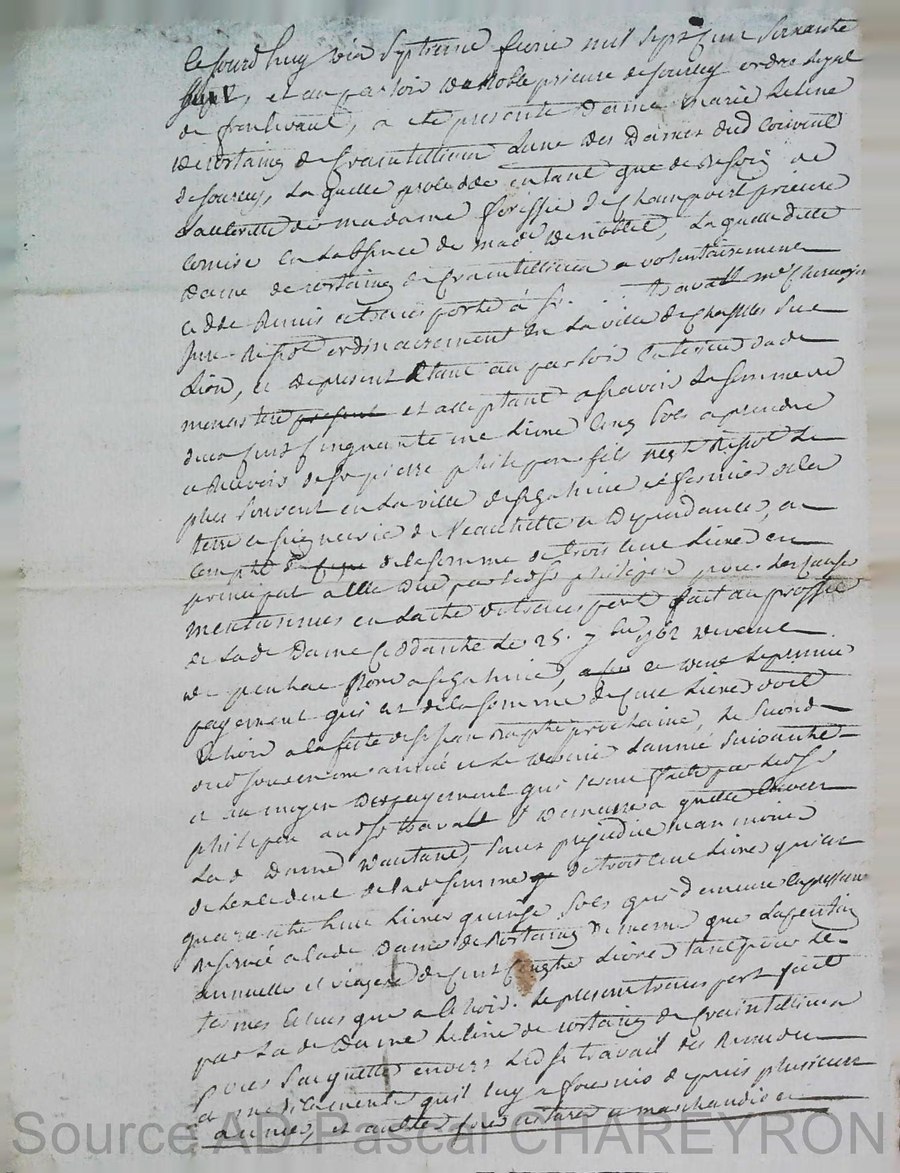 Ce jourd huy vin Septieme feuvrier mil sept Cent Soixante
Sept, et au parloir de noble prieuré de jourcey ordre Royal
de fontevaut, a eté presente Dame marie heleine
de rostaing de Craintillieu Lune Des Dames dud Couvent
de jourcey, Laquelle procedde entant que de Besoin de
Lautorité de madame de Champvert prieure
Comise en Labsence de made de noblet, Laquelle ditte
Dame de rostaing de Craintillieu a volontairement
cedde Remis et transporté à Sr. travail me Chirurgien
jure Reside ordinairement en La ville de Chazelles Sur
Lion, et de present Etant au parloir Exterieur dud
monastere present et acceptant asçavoir La Somme de
deux Cent Cinquante une Livre Cinq Sols a prendre
a Recevoir de Sr pierre philipon fils negt Reside Le
plus Souvent en La ville de St galmier et fermier de la
terre et Seigneurie de et Dependances, a
Compte de de la Somme de trois Cent Livres en
principal a Elle Due par led Sr philipon pour Les Causes
mentionnés en Lacte de transport fait au proffit
de Lad Dame Ceddante Le 25. 1762
no.re a St galmier, et dont Le premier
payement qui est de la Somme de Cent Livres doit
Echoir a la feste de St jean Baptiste prochaine, Le Second
en une année et Le dernier Lannée Suivante
et au moyen Des payements qui Seront faits par led Sr
philipon aud Sr travail il Demeurera quitte Envers
Lad Dame Dautant, Sans prejudice neanmoins
de Lexcedent de lad Somme de trois Cent Livres qui est
quarante huit Livres quinze Sols qui demeure Expressement
Reservée a lad Dame de Rostaing de meme que La pention
annuelle et viagere de Cent Cinq.te Livres tant pour Les
termes Echus que a Echoir. Le present transport fait
par Lad Dame heleine de rostaing de Craintillieu
pour Saquitter envers Led Sr travail des Remedes
et medicaments quil luy a fournis depuis plusieurs
années, et autres fournitures et marchandises
Source AD Pascal CHAREYRON